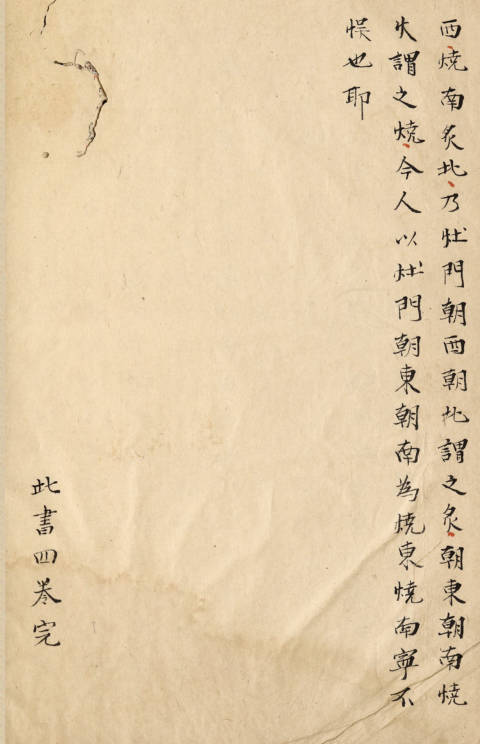 西燒南炙北乃灶門朝西朝北謂之炙朝東朝南燒
火謂之燒今人以灶門朝東朝南為燒東燒南寧不
悮也耶
此書四卷完